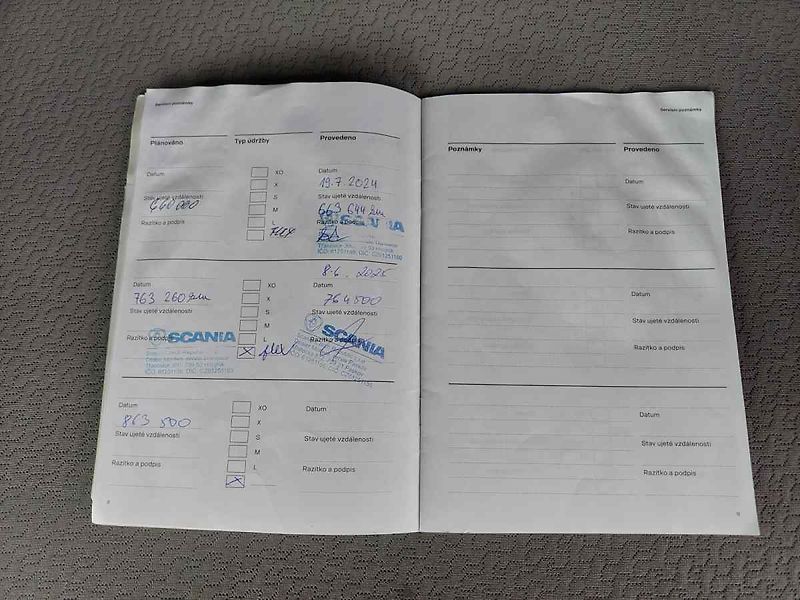 Servisní poznámky
Plánováno Typ údržby Provedeno
Datum XO Datum
X 19.7.2024
Stav ujeté vzdálenosti S Stav ujeté vzdálenosti
M 663 644 km
Razítko a podpis L Razítko a podpis
FLEX SCANIA
Datum XO
763 260 km X 764500
Stav ujeté vzdálenosti S Stav ujeté vzdálenosti
M
Razítko a podpis L Razítko a podpis
SCANIA flex SCANIA
Datum XO Datum
863 500 X
Stav ujeté vzdálenosti S Stav ujeté vzdálenosti
M
Razítko a podpis L Razítko a podpis
Servisní poznámky
Poznámky Provedeno
Datum
Stav ujeté vzdálenosti
Razítko a podpis
Datum
Stav ujeté vzdálenosti
Razítko a podpis
Datum
Stav ujeté vzdálenosti
Razítko a podpis